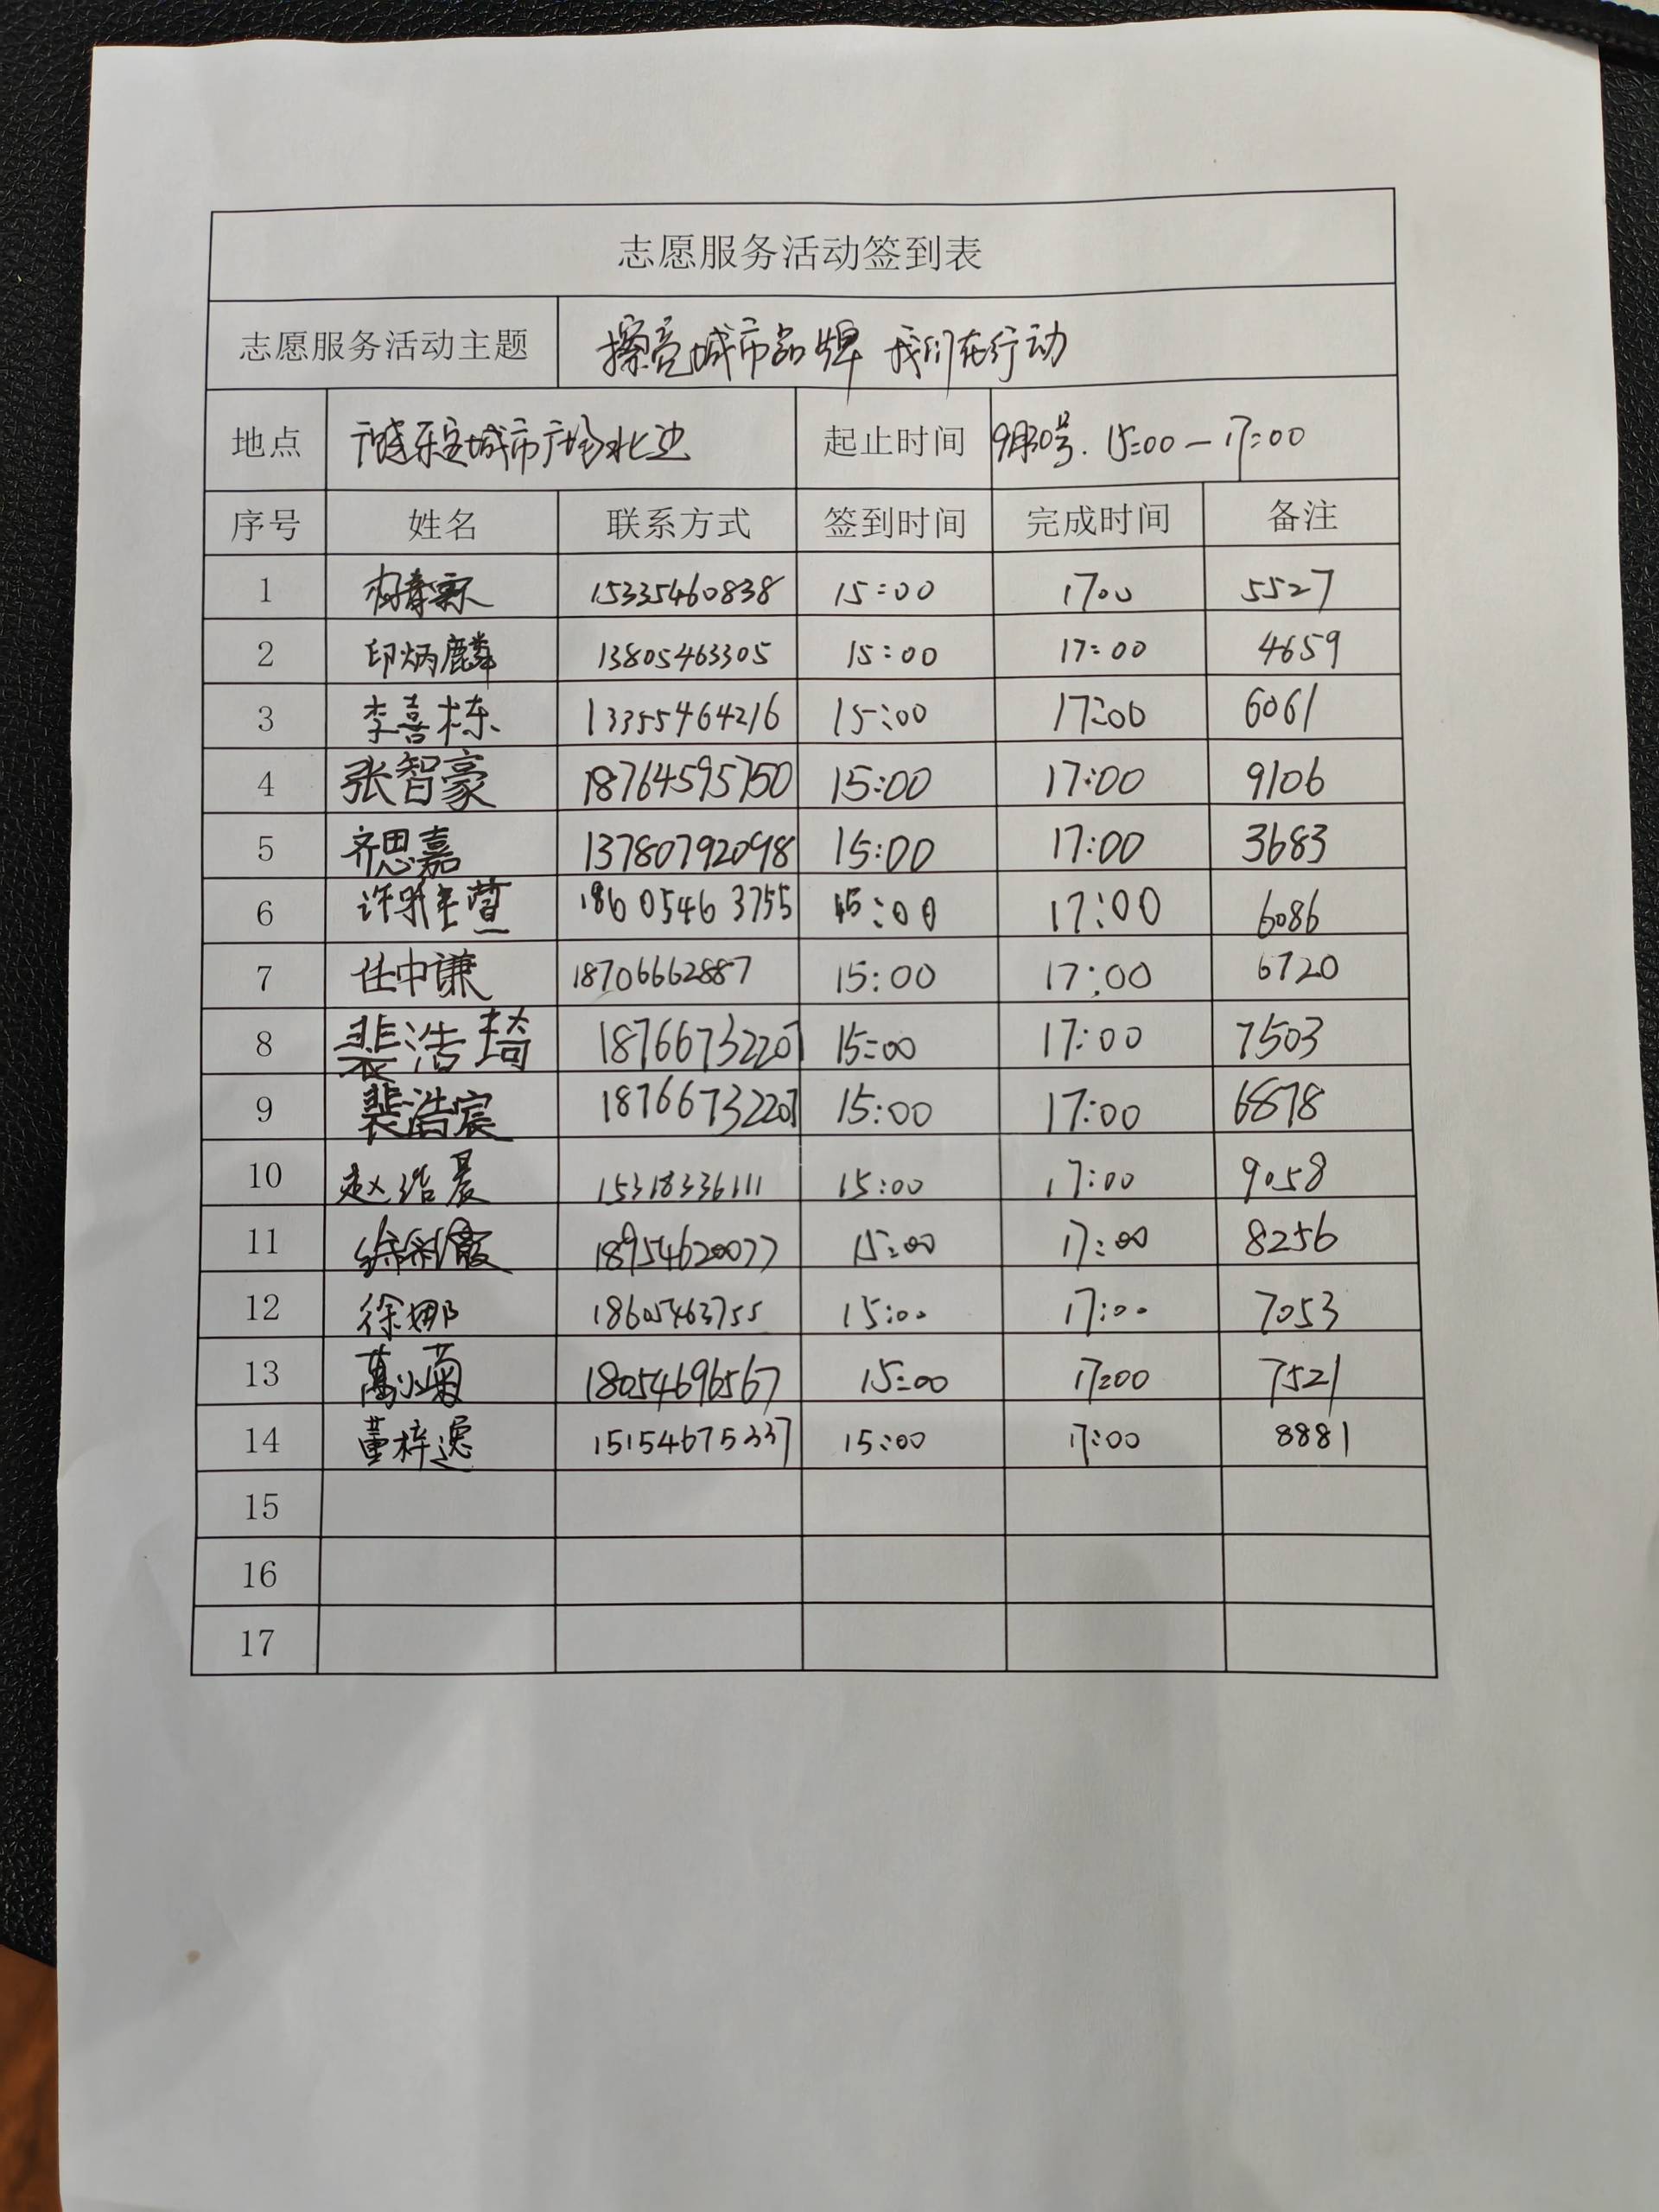 志愿服务活动签到表
志愿服务活动主题 擦亮城市品牌 我们在行动
地点 广饶乐安城市广场北边 起止时间 9月30号. 15:00—17:00
序号 姓名 联系方式 签到时间 完成时间 备注
1 15335460838 15:00 17:00 5527
2 印炳麟 13805463305 15:00 17:00 4659
3 李喜栋 13355464216 15:00 17:00 6061
4 张智豪 18764595750 15:00 17:00 9106
5 齐思嘉 13780792098 15:00 17:00 3683
6 许雅萱 18605463755 15:00 17:00 6086
7 任中谦 18706662887 15:00 17:00 6720
8 裴浩琦 18766732207 15:00 17:00 7503
9 裴浩宸 18766732207 15:00 17:00 6878
10 赵浩晨 15318336111 15:00 17:00 9058
11 18954620077 15:00 17:00 8256
12 徐娜 18605463755 15:00 17:00 7053
13 万小菊 18054696567 15:00 17:00 7521
14 董梓逸 15154675337 15:00 17:00 8881
15
16
17